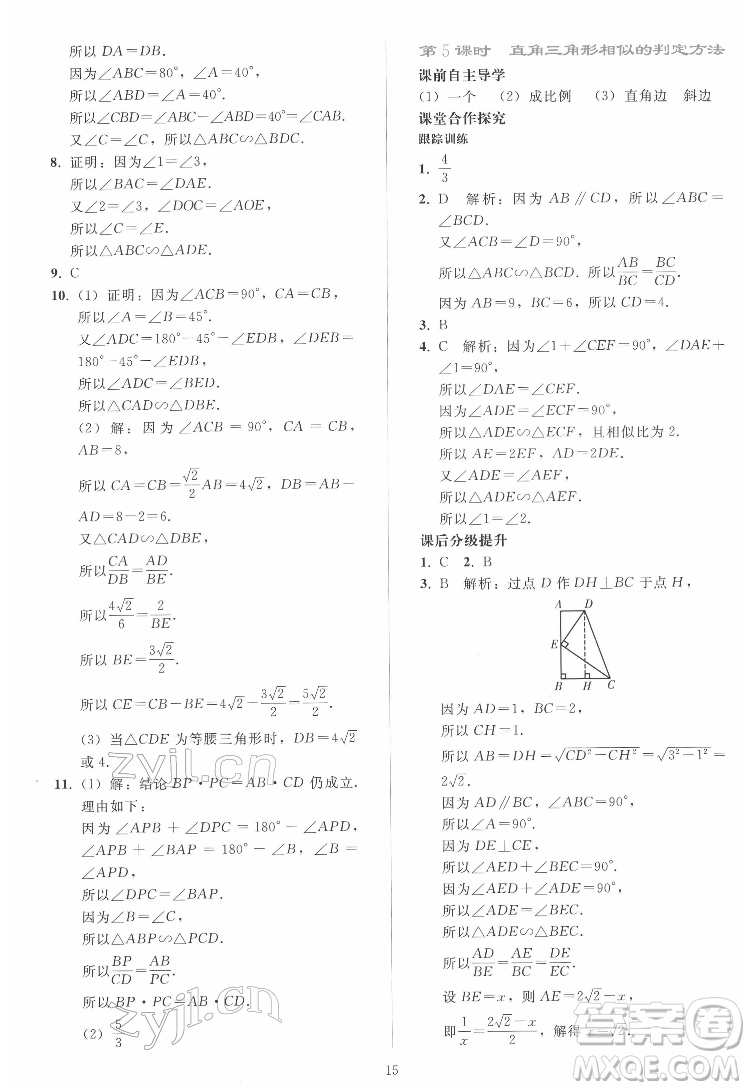 所以 DA=DB.
因为∠ABC=80°,∠A=40°,
所以∠ABD=∠A=40°.
所以∠CBD=∠ABC-∠ABD=40°=∠A.
又∠C=∠C,所以△ABC∽△BDC.
8. 证明:因为∠1=∠3,
所以∠BAC=∠DAE.
又∠2=∠3,∠DOC=∠AOE,
所以∠C=∠E.
所以△ABC∽△ADE.
9. C
10. (1) 证明:因为∠ACB=90°,CA=CB,
所以∠A=∠B=45°.
又∠ADC=180°-45°-∠EDB,∠DEB=
180°-45°-∠EDB,
所以∠ADC=∠BED.
所以△CAD∽△DBE.
(2) 解:因为∠ACB=90°,CA=CB,
AB=8,
所以 CA=CB=√2/2 AB=4√2,DB=AB-
AD=8-2=6.
又△CAD∽△DBE,
所以 CA/DB=AD/BE.
所以 4√2/6=2/BE.
所以 BE=3√2/2.
所以 CE=CB-BE=4√2-3√2/2=5√2/2.
(3) 当△CDE 为等腰三角形时,DB=4√2
或4.
11. (1) 解:结论 BP·PC=AB·CD 仍成立.
理由如下:
因为∠APB+∠DPC=180°-∠APD,
∠APB+∠BAP=180°-∠B,∠B=
∠APD,
所以∠DPC=∠BAP.
因为∠B=∠C,
所以△ABP∽△PCD.
所以 BP/CD=AB/PC.
所以 BP·PC=AB·CD.
(2) 5/3
第5课时 直角三角形相似的判定方法
课前自主导学
(1) 一个 (2) 成比例 (3) 直角边 斜边
课堂合作探究
跟踪训练
1. 4/3
2. D 解析:因为 AB∥CD,所以∠ABC=
∠BCD.
又∠ACB=∠D=90°,
所以△ABC∽△BCD.所以 AB/BC=BC/CD.
因为 AB=9,BC=6,所以 CD=4.
3. B
4. C 解析:因为∠1+∠CEF=90°,∠DAE+
∠1=90°,
所以∠DAE=∠CEF.
所以△ADE∽△ECF,且相似比为2.
所以 AE=2EF,AD=2DE.
又∠ADE=∠AEF,
所以△ADE∽△AEF.
所以∠1=∠2.
课后分级提升
1. C 2. B
3. B 解析:过点 D 作 DH⊥BC 于点 H,
A D
E
B H C
因为 AD=1,BC=2,
所以 CH=1.
所以 AB=DH=√(CD²-CH²)=√(3²-1²)=
2√2.
因为 AD∥BC,∠ABC=90°,
所以∠A=90°.
因为 DE⊥CE,
所以∠AED+∠BEC=90°.
因为∠AED+∠ADE=90°,
所以∠ADE=∠BEC.
所以△ADE∽△BEC.
所以 AD/BE=AE/BC=DE/EC.
设 BE=x,则 AE=2√2-x,
即 1/x=(2√2-x)/2,解得 x=√2.
15
zyjl.cn
zyjl.cn
答案圈
MXQE.COM